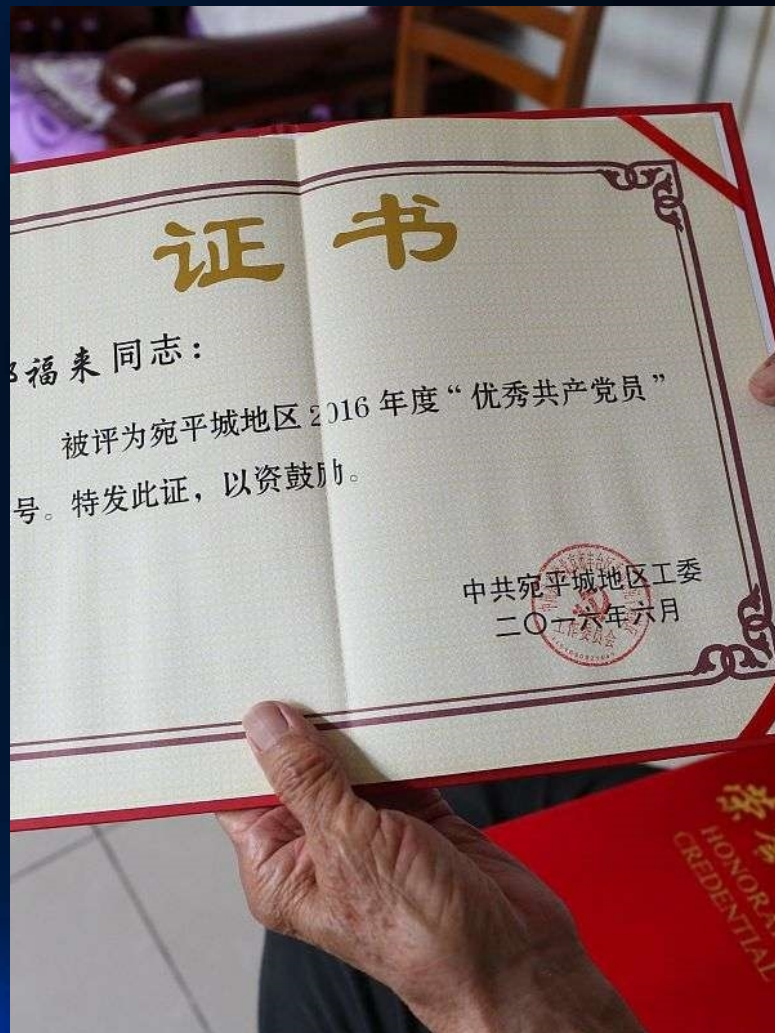 证书
福来同志：
被评为宛平城地区2016年度“优秀共产党员”
号。特发此证，以资鼓励。
中共宛平城地区工委
二〇一六年六月
工作委员会
荣
HONORA
CREDENTIAL